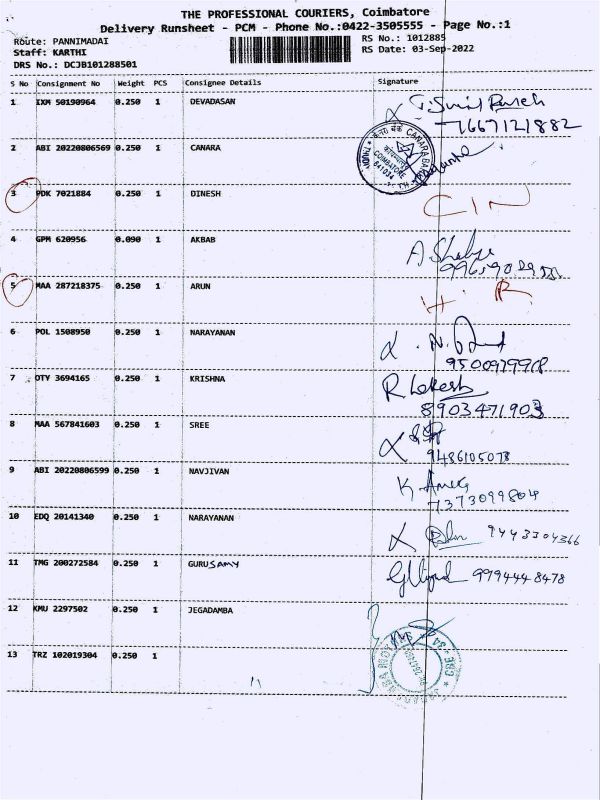 THE PROFESSIONAL COURIERS, Coimbatore
Delivery Runsheet - PCM - Phone No.:0422-3505555 - Page No.:1
Route: PANNIMADAI
RS No.: 1012885
Staff: KARTHI
RS Date: 03-Sep-2022
DRS No.: DCJB101288501
S No Consignment No Weight PCS Consignee Details Signature
1 IXM 50190964 0.250 1 DEVADASAN
7667121882
2 ABI 20220806569 0.250 1 CANARA
CANARA BANK
COIMBATORE
641034
3 PDK 7021884 0.250 1 DINESH
CIN
4 GPM 620956 0.090 1 AKBAB
5 MAA 287218375 0.250 1 ARUN
H.R
6 POL 1508950 0.250 1 NARAYANAN
7 OTY 3694165 0.250 1 KRISHNA
R Lokesh
8903471903
8 MAA 567841603 0.250 1 SREE
9486105078
9 ABI 20220806599 0.250 1 NAVJIVAN
7373099804
10 EDQ 20141340 0.250 1 NARAYANAN
9443304366
11 TMG 200272584 0.250 1 GURUSAMY
9994448478
12 KMU 2297502 0.250 1 JEGADAMBA
13 TRZ 102019304 0.250 1